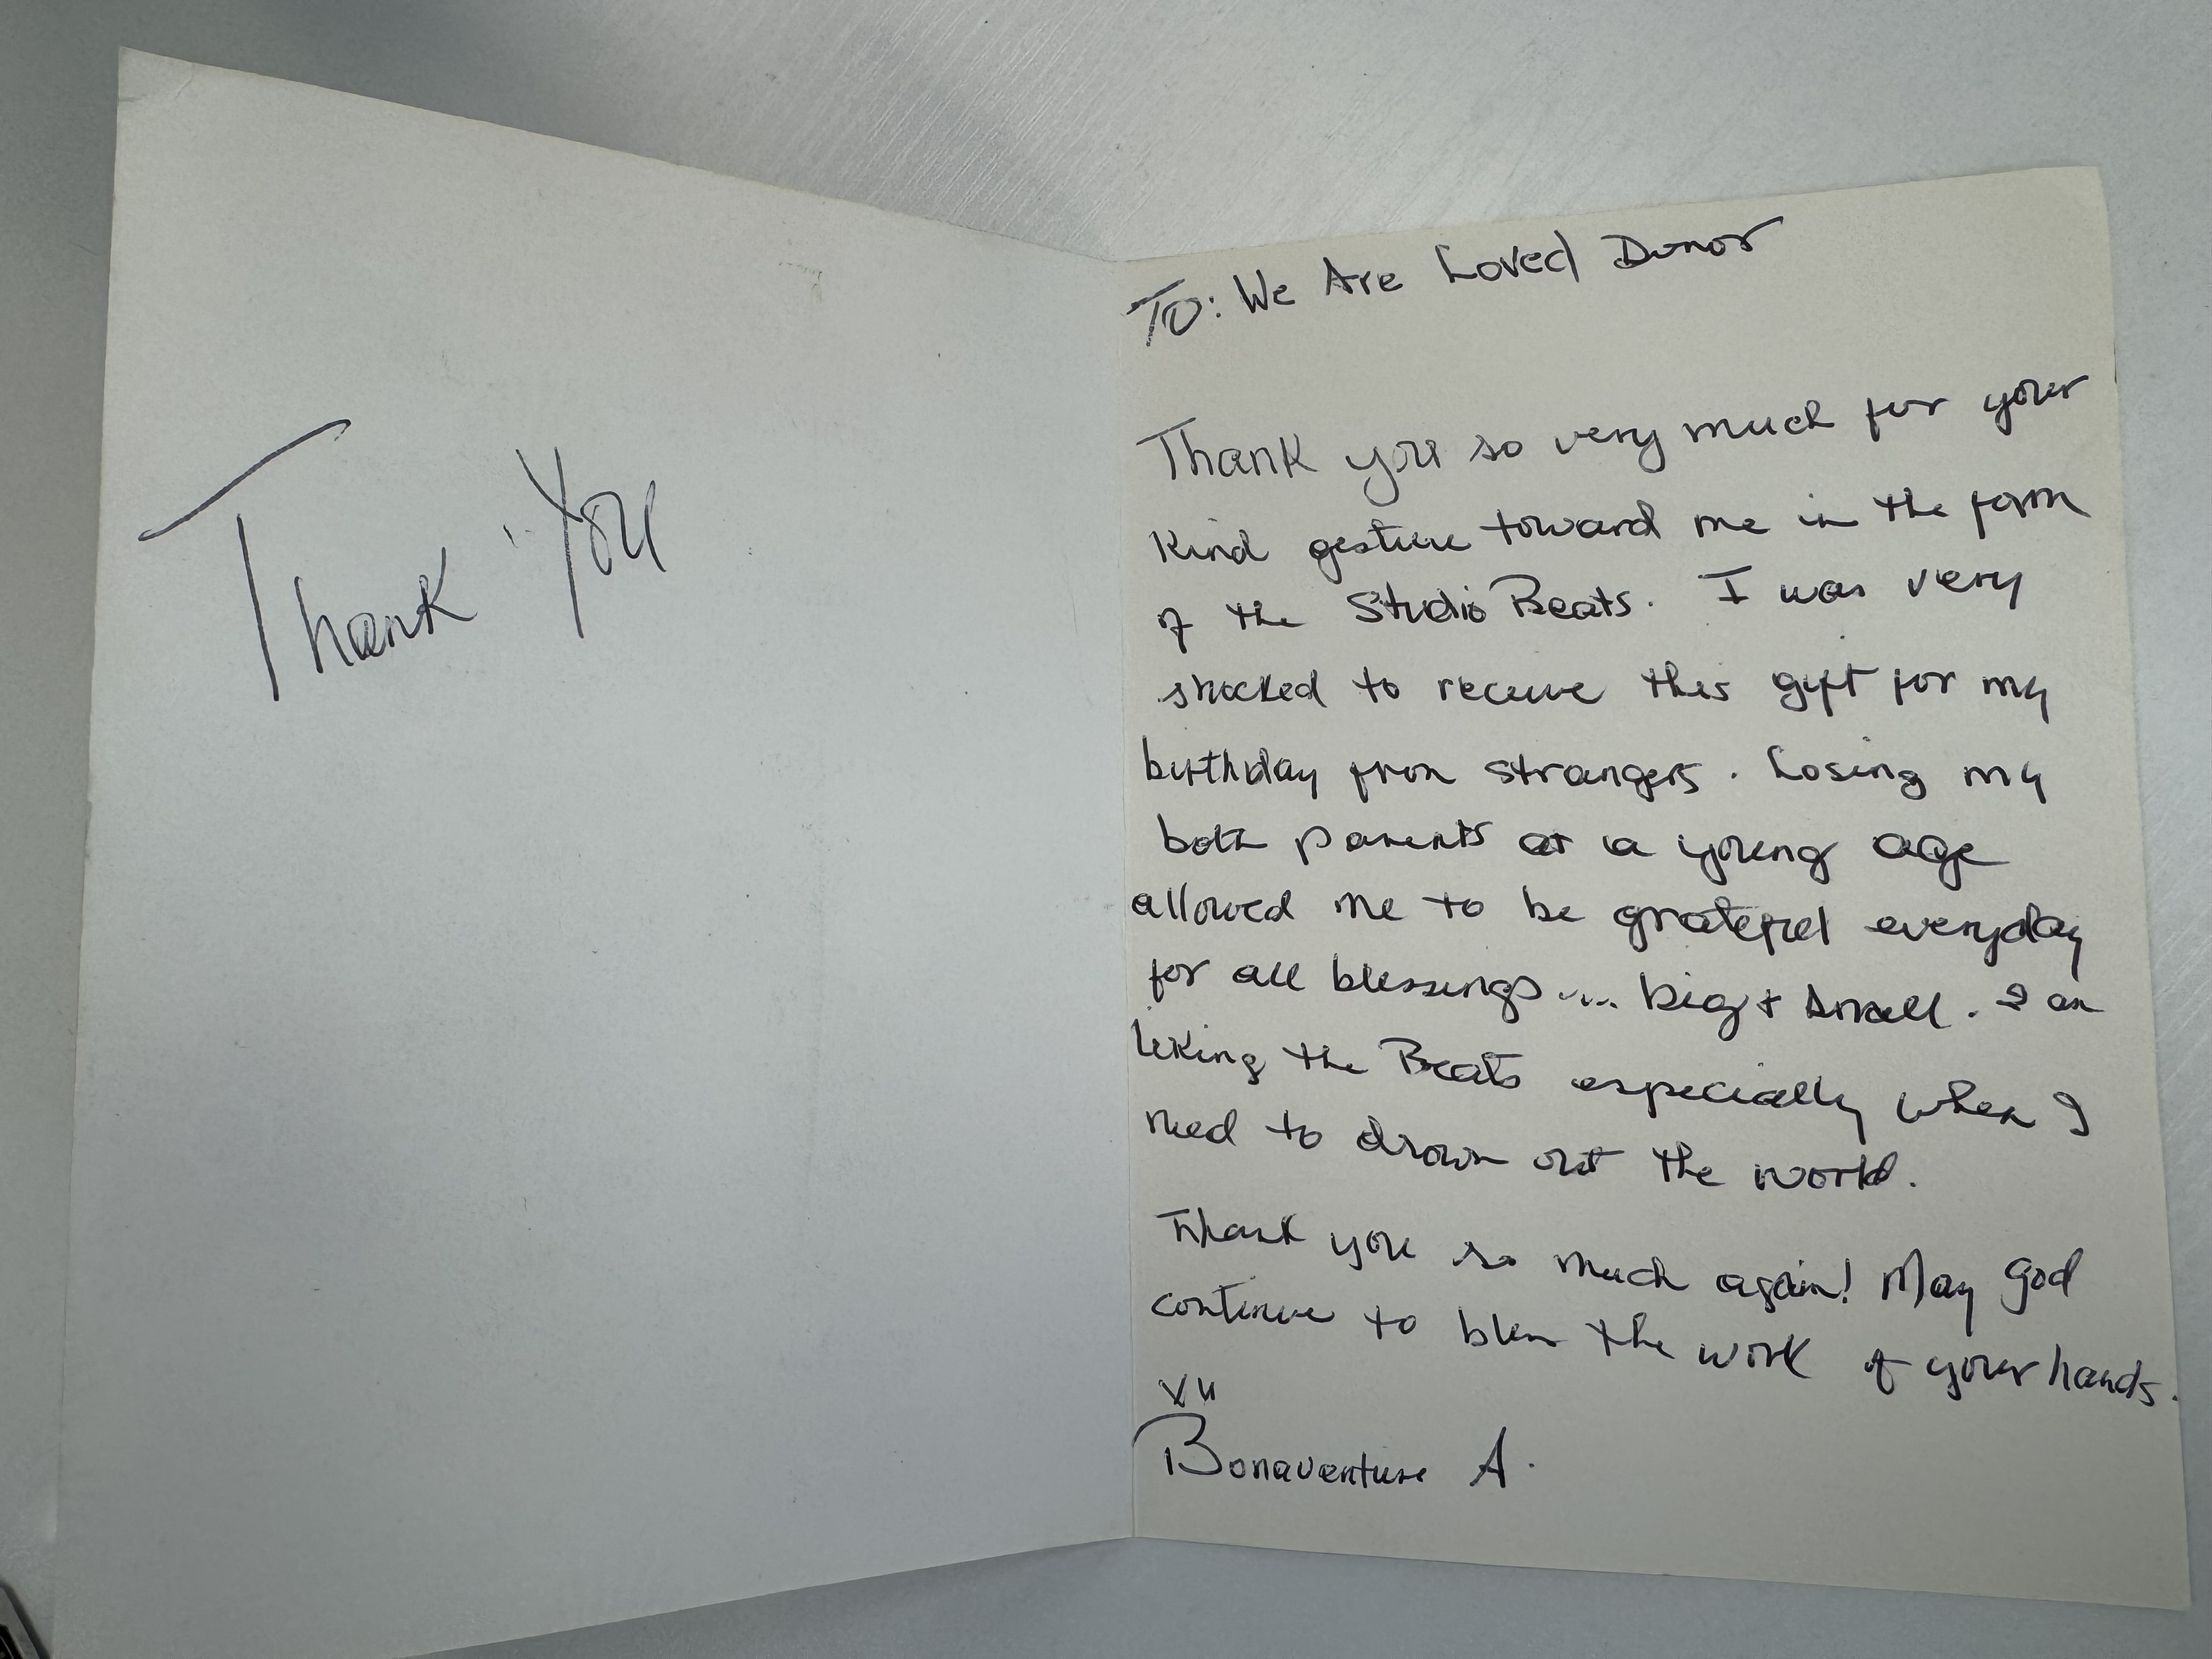 Thank You
To: We Are Loved Donor
Thank you so very much for your
kind gesture toward me in the form
of the Studio Beats. I was very
shocked to receive this gift for my
birthday from strangers. Losing my
both parents at a young age
allowed me to be grateful everyday
for all blessings.... big + small. I am
liking the Beats especially when I
need to drown out the world.
Thank you so much again! May God
continue to bless the work of your hands.
Bonaventure A.